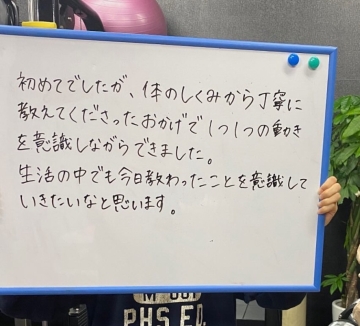 初めてでしたが、体のしくみから丁寧に
教えてくださったおかげで1つ1つの動き
を意識しながらできました。
生活の中でも今日教わったことを意識して
いきたいなと思います。
PHS.ED.